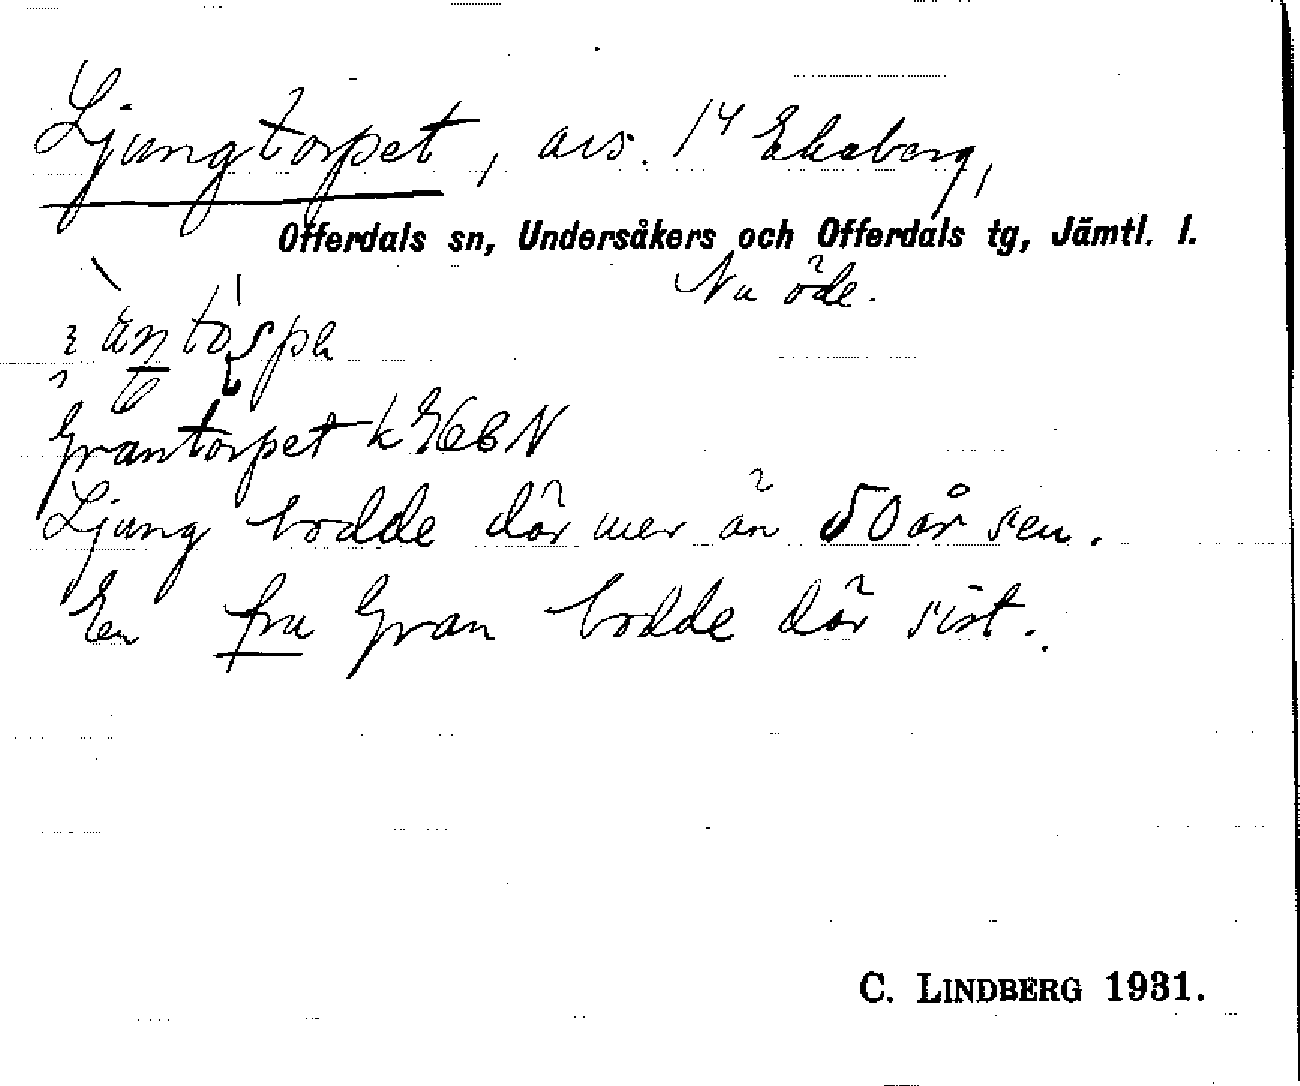 Ljungtorpet, avs. 1⁴ Ekeberg,
Offerdals sn, Undersåkers och Offerdals tg, Jämtl. l.
Nu öde.
Grantorpet k GEbN
Ljung bodde där mer än 50 år sen.
En fru Gran bodde där sist.
C. LINDBERG 1931.